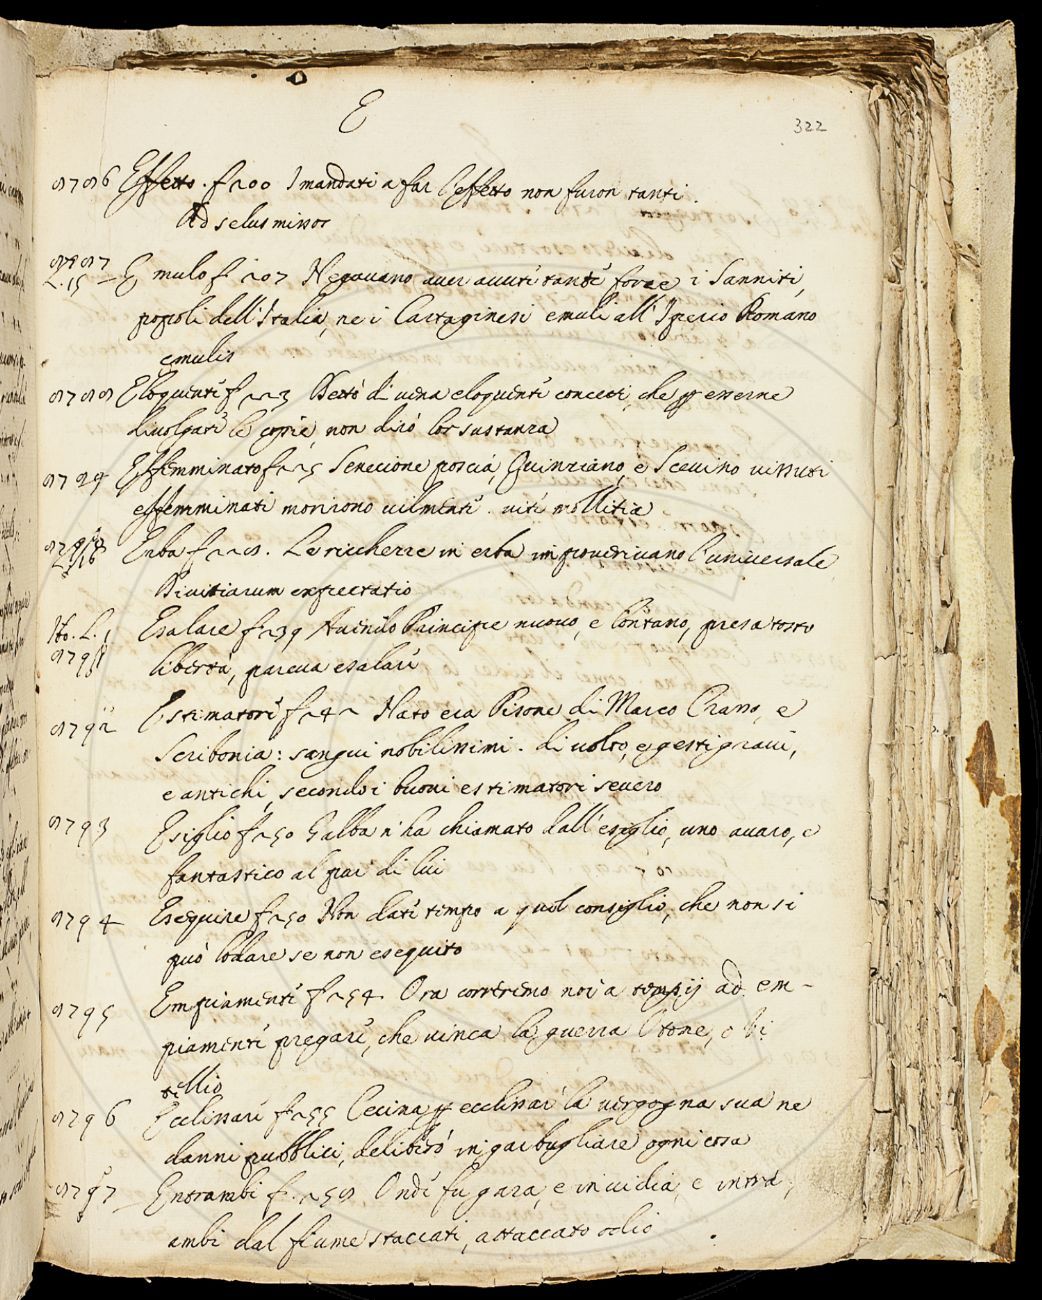 E
322
8786 Effetto. f 200 I mandati a far l'effetto non furon tanti.
Ad scelus missos
8787 Emulo f 207 Negavano aver avuti tante forze i Sanniti,
L. 15
popoli dell'Italia, ne i Cartaginesi emuli all'Iperio Romano
emulis
8788 Eloquenti f 223 Dettò di vena eloquenti concetti, che per esserne
divolgati le copie, non dirò lor sustanza
8789 Effemminato f 225 Senecione poscia, Quinziano, e Scevino vissuti
effemminati morirono vilmente. viti mollitia
8790 Erba f 228. Le ricchezze in erba impoverivano l'universale
L. 16
Divitiarum expectatio
Sto. L. 1
8791 Esalare f 239 Avendo Principe nuovo, e lontano, presa tosto
libertà, pareva esalare
8792 Estimatori f 242 Nato era Pisone di Marco Crasso, e
Scribonia: sangui nobilissimi. di volto, e gesti gravi,
e antichi, secondo i buoni estimatori severo
8793 Esiglio f 250 Galba n'ha chiamato dall'esiglio, uno avaro, e
fantastico al par di lui
8794 Eseguire f 250 Non dati tempo a quel consiglio, che non si
può lodare se non eseguito
8795 Empiamenti f 254 Ora correremo noi a tempij ad em-
piamenti pregare, che vinca la guerra Otone, o Vi
tellio
8796 Ecclinare f 255 Cecina per ecclinar la vergogna sua ne
danni pubblici, deliberò ingarbugliare ogni cosa
8797 Entrambi f. 258 Onde fu gara, e invidia, e intra,
ambi dal fiume staccati, attaccato odio